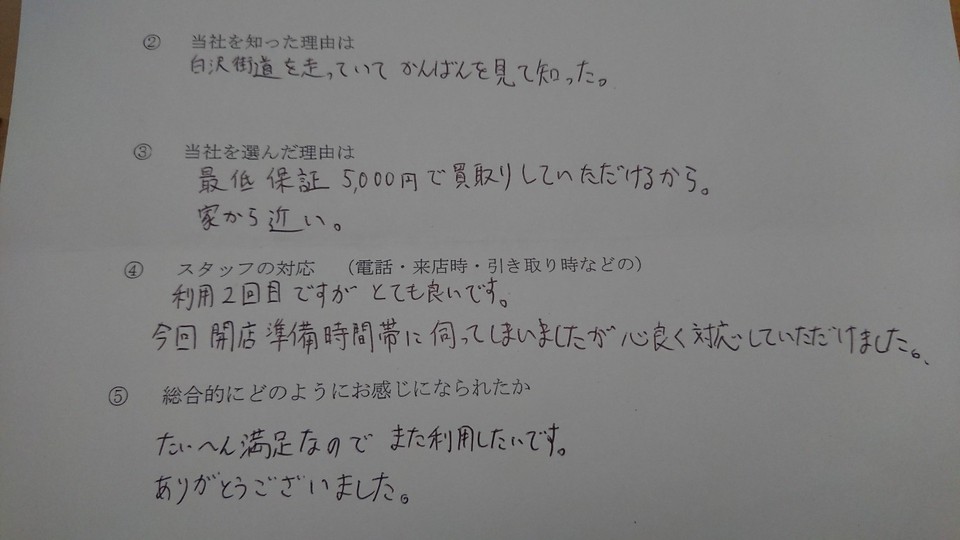 ② 当社を知った理由は
白沢街道を走っていて かんばんを見て知った。
③ 当社を選んだ理由は
最低保証 5,000円で買取りしていただけるから。
家から近い。
④ スタッフの対応 (電話・来店時・引き取り時などの)
利用2回目ですが とても良いです。
今回 開店準備時間帯に伺ってしまいましたが心良く対応していただけました。
⑤ 総合的にどのようにお感じになられたか
たいへん満足なので また利用したいです。
ありがとうございました。